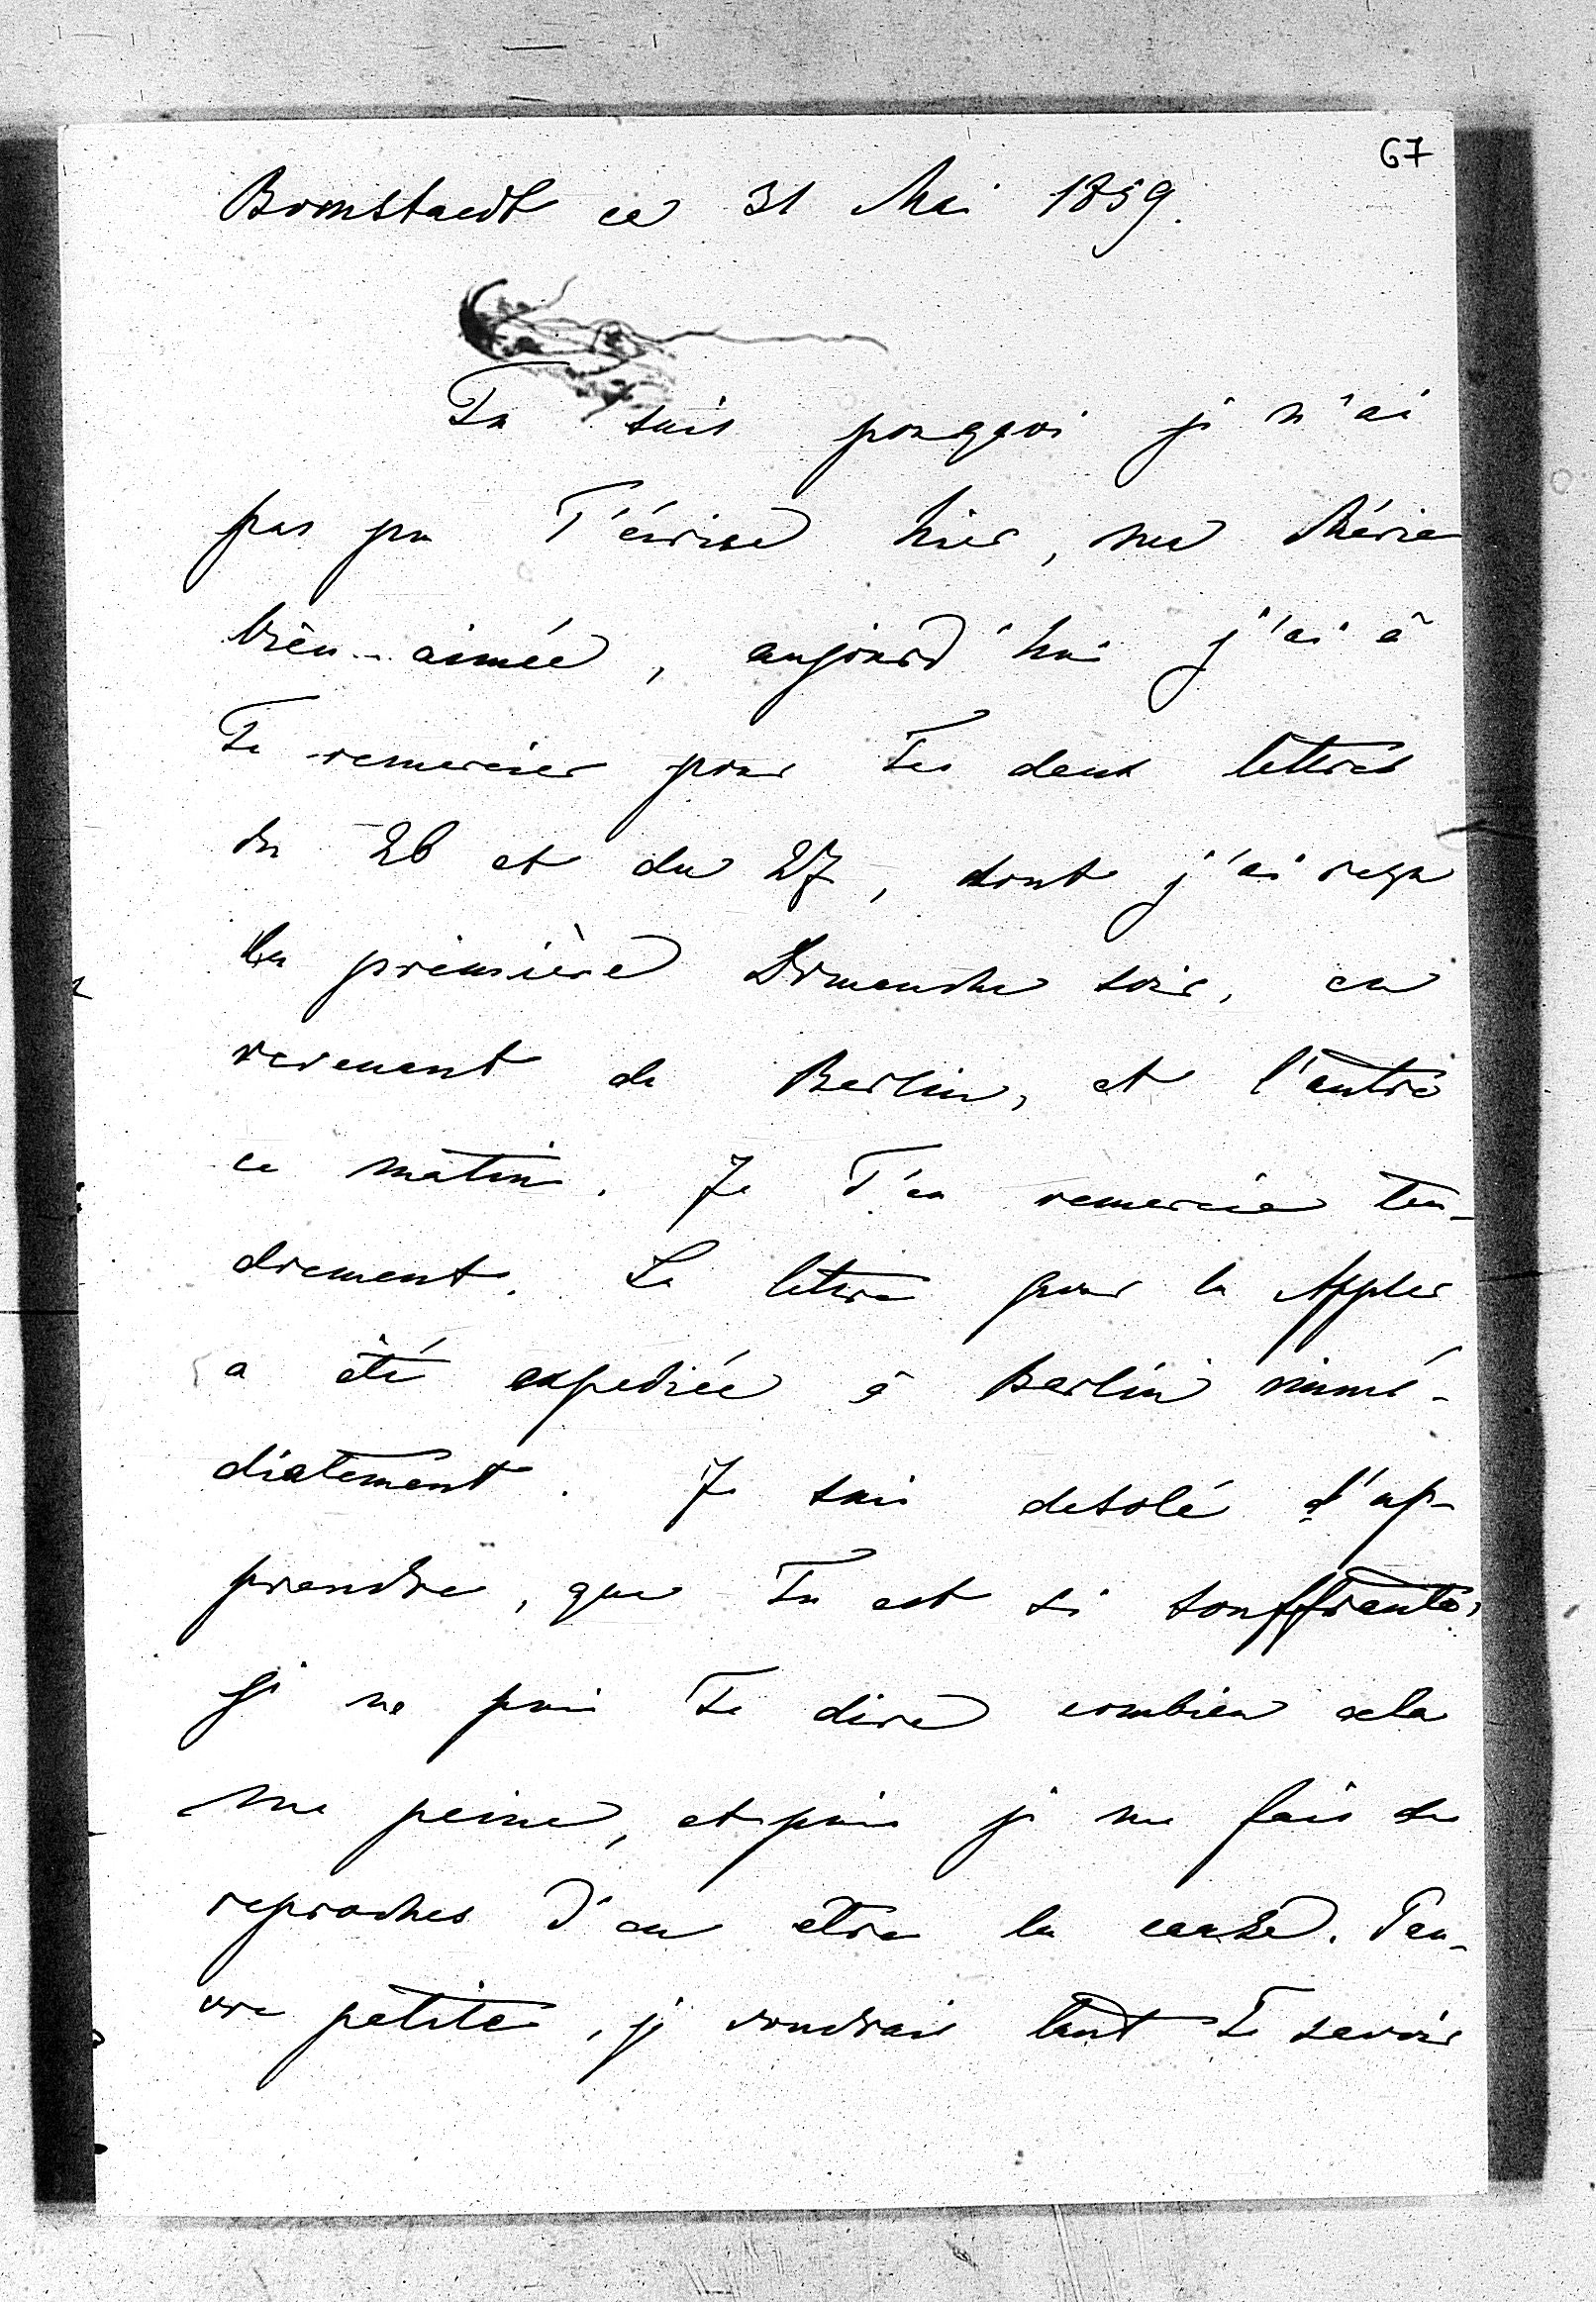 67
Bornstaedt ce 31 Mai 1859.
Tu sais pourquoi je n'ai
pas pu T'écrire hier, ma Mérie
bien-aimée, aujourd'hui j'ai à
Te remercier pour Tes deux lettres
du 26 et du 27, dont j'ai reçu
la première Dimanche soir, en
revenant de Berlin, et l'autre
ce matin. Je T'en remercie ten-
drement. La lettre pour la Appler
a été expediée à Berlin immé-
diatement. Je suis desolé d'ap-
prendre, que Tu est si souffrante,
je ne puis Te dire combien cela
me peine, et puis je me fais des
reproches d'en être la cause. Pau-
vre petite, je voudrais tant Te savoir